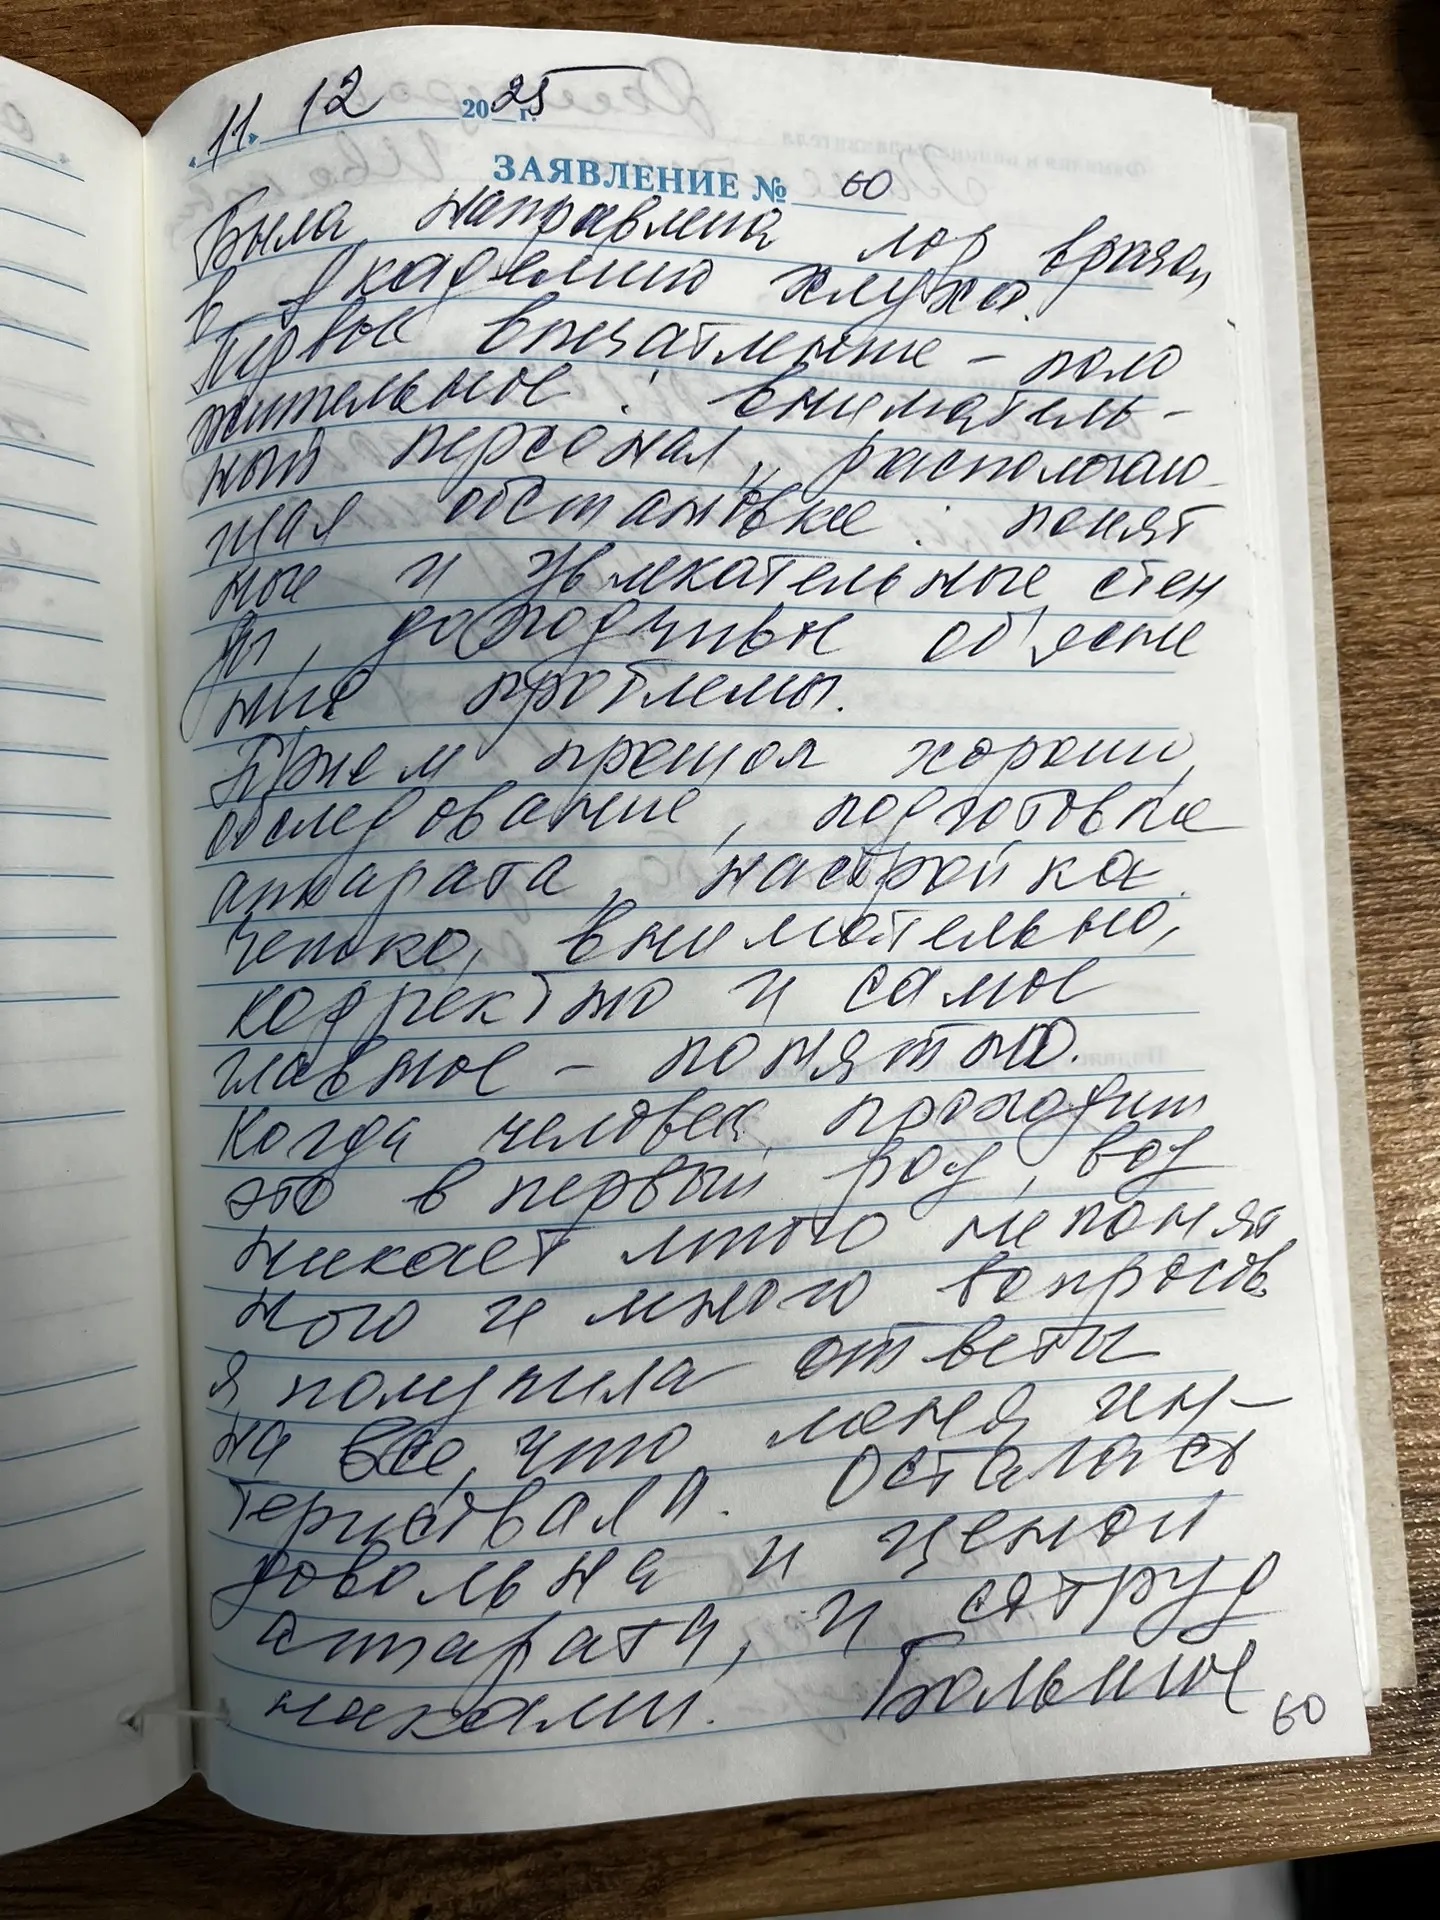 «11» 12 2025 г.
ЗАЯВЛЕНИЕ № 60
Была направлена лор врачом
в Академию слуха.
Первое впечатление – поло
жительное: вниматель-
ный персонал, располагаю-
щая обстановка: понят
ные и увлекательные стен
ды, доходчивое об'ясне
ние проблемы.
Прием прошел хорошо,
обследование, подготовка
аппарата, настройка.
Четко, внимательно,
корректно и самое
главное – понятно.
Когда человек проходит
это в первый раз, воз
никает много непонят
ного и много вопросов.
Я получила ответы
на все, что меня ин-
терисовало. Осталась
довольна и ценой
аппарата, и сотруд
никами. Большое
60